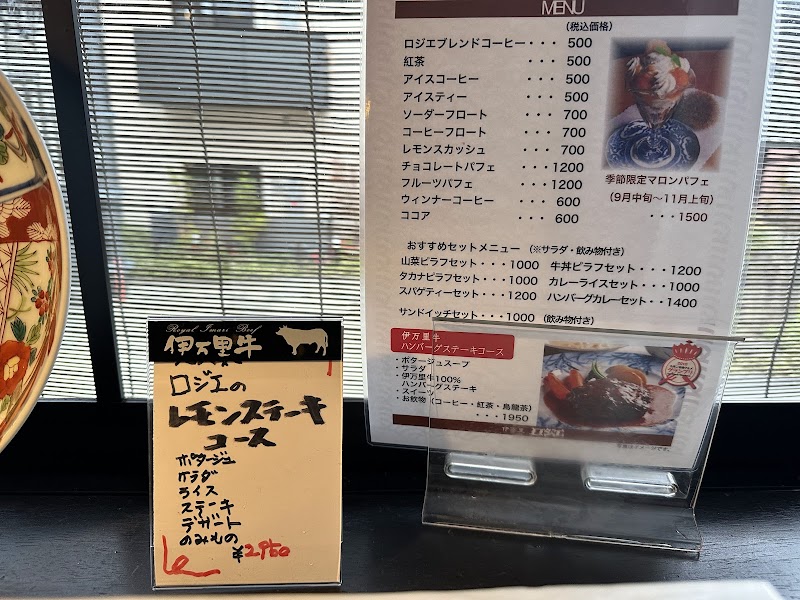 MENU
（税込価格）
ロジエブレンドコーヒー・・・ 500
紅茶 ・・・ 500
アイスコーヒー ・・・ 500
アイスティー ・・・ 500
ソーダーフロート ・・・ 700
コーヒーフロート ・・・ 700
レモンスカッシュ ・・・ 700
チョコレートパフェ ・・・1200
フルーツパフェ ・・・1200
ウィンナーコーヒー ・・・ 600
ココア ・・・ 600
季節限定マロンパフェ
（9月中旬〜11月上旬）
・・・1500
おすすめセットメニュー （※サラダ・飲み物付き）
山菜ピラフセット・・・1000 牛丼ピラフセット・・・1200
タカナピラフセット・・・1000 カレーライスセット・・・1000
スパゲティーセット・・・1200 ハンバーグカレーセット・・1400
サンドイッチセット・・・1000 （飲み物付）
伊万里牛
ハンバーグステーキコース
・ポタージュスープ
・サラダ
・伊万里牛100%
ハンバーグステーキ
・スイーツ
・お飲物（コーヒー・紅茶・烏龍茶）
・・・1950
Royal Imari Beef
伊万里牛
ロジエの
レモンステーキ
コース
ポタージュ
サラダ
ライス
ステーキ
デザート
のみもの
¥2950